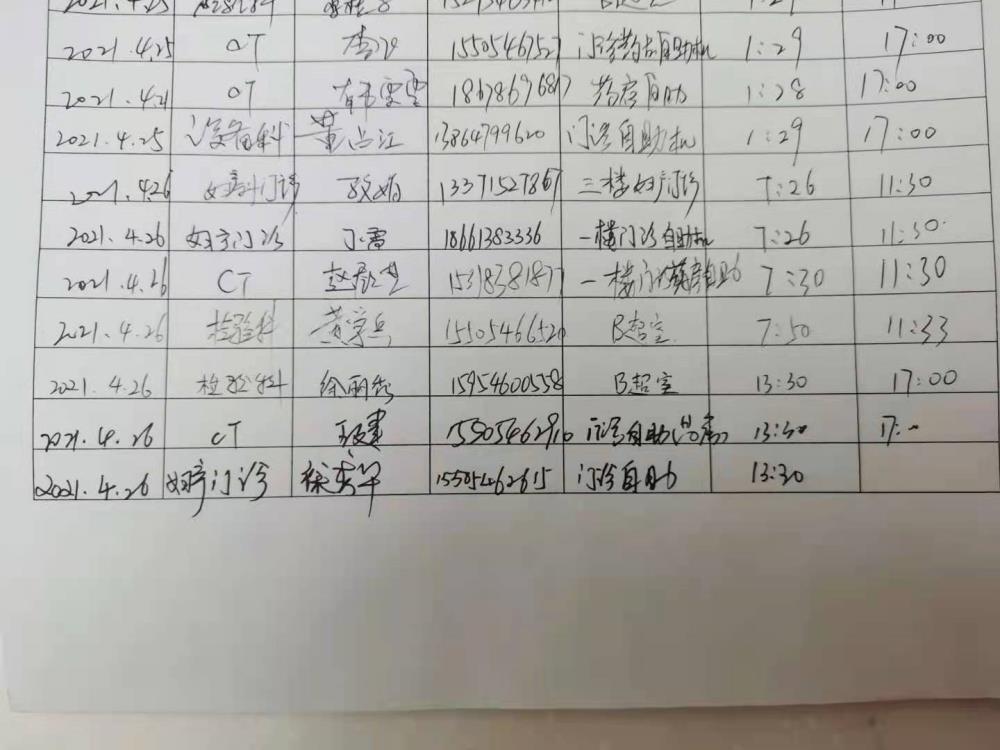 2021.4.25
2021.4.25 CT 15505467527 门诊药房自助机 1:29 17:00
2021.4.21 CT 18678696817 药房自助 1:28 17:00
2021.4.25 设备科 董占江 13864799620 门诊自助机 1:29 17:00
2021.4.26 妇产科门诊 13371527867 三楼妇产门诊 7:26 11:30
2021.4.26 妇产门诊 丁雷 18661383336 一楼门诊自助机 7:26 11:30
2021.4.26 CT 15318381877 一楼门诊药房自助 7:30 11:30
2021.4.26 检验科 黄学兵 15505466520 B超室 7:50 11:33
2021.4.26 检验科 徐丽秀 15954600558 B超室 13:30 17:00
2021.4.26 CT 15505462910 门诊自助 13:30 17:
2021.4.26 妇产门诊 徐秀华 15505462615 门诊自助 13:30